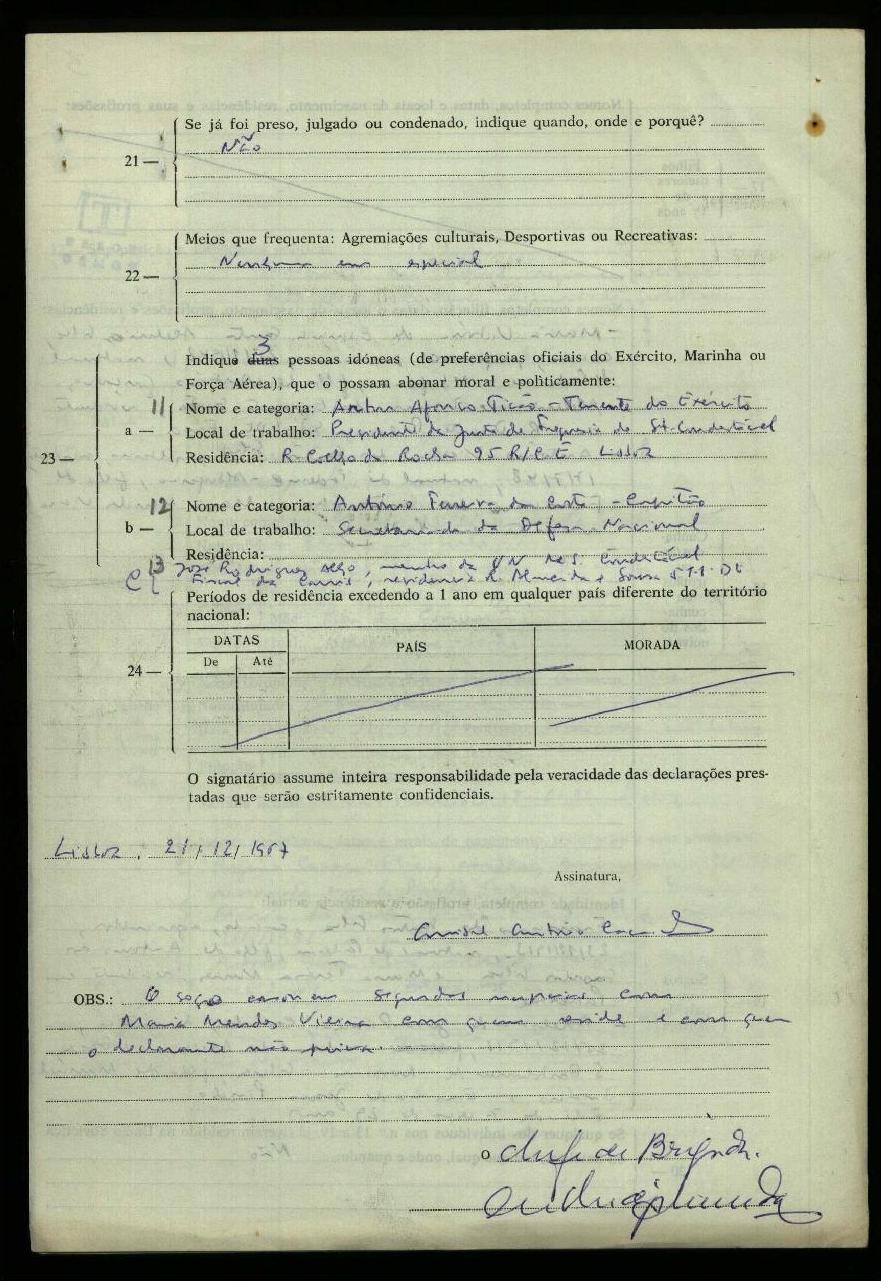 Se já foi preso, julgado ou condenado, indique quando, onde e porquê?
21 — Não
Meios que frequenta: Agremiações culturais, Desportivas ou Recreativas:
22 — Nenhuma em especial
3
Indique duas pessoas idóneas (de preferências oficiais do Exército, Marinha ou
Força Aérea), que o possam abonar moral e politicamente:
11 Nome e categoria: Afonso - Tenente do Exército
a — Local de trabalho: Presidente da Junta de Freguesia de Stº Condestável
23 — Residência: R. Coelho da Rocha 95 R/C E Lisboa
12 Nome e categoria: António Ferreira da Costa - Capitão
b — Local de trabalho: Secretariado da Defesa Nacional
Residência:
13 José Rodrigues, membro da UN Condestável
c Fiscal da Carris, residencia R. Almeida e Sousa
Períodos de residência excedendo a 1 ano em qualquer país diferente do território
nacional:
DATAS PAÍS MORADA
De Até
24 —
O signatário assume inteira responsabilidade pela veracidade das declarações pres-
tadas que serão estritamente confidenciais.
Lisboa, 21/12/1967
Assinatura,
António
OBS.: O sogro casou em segundas nupcias com
Maria Mendes Vieira com quem reside e com quem
o declarante não priva.
o chefe de Brigada.